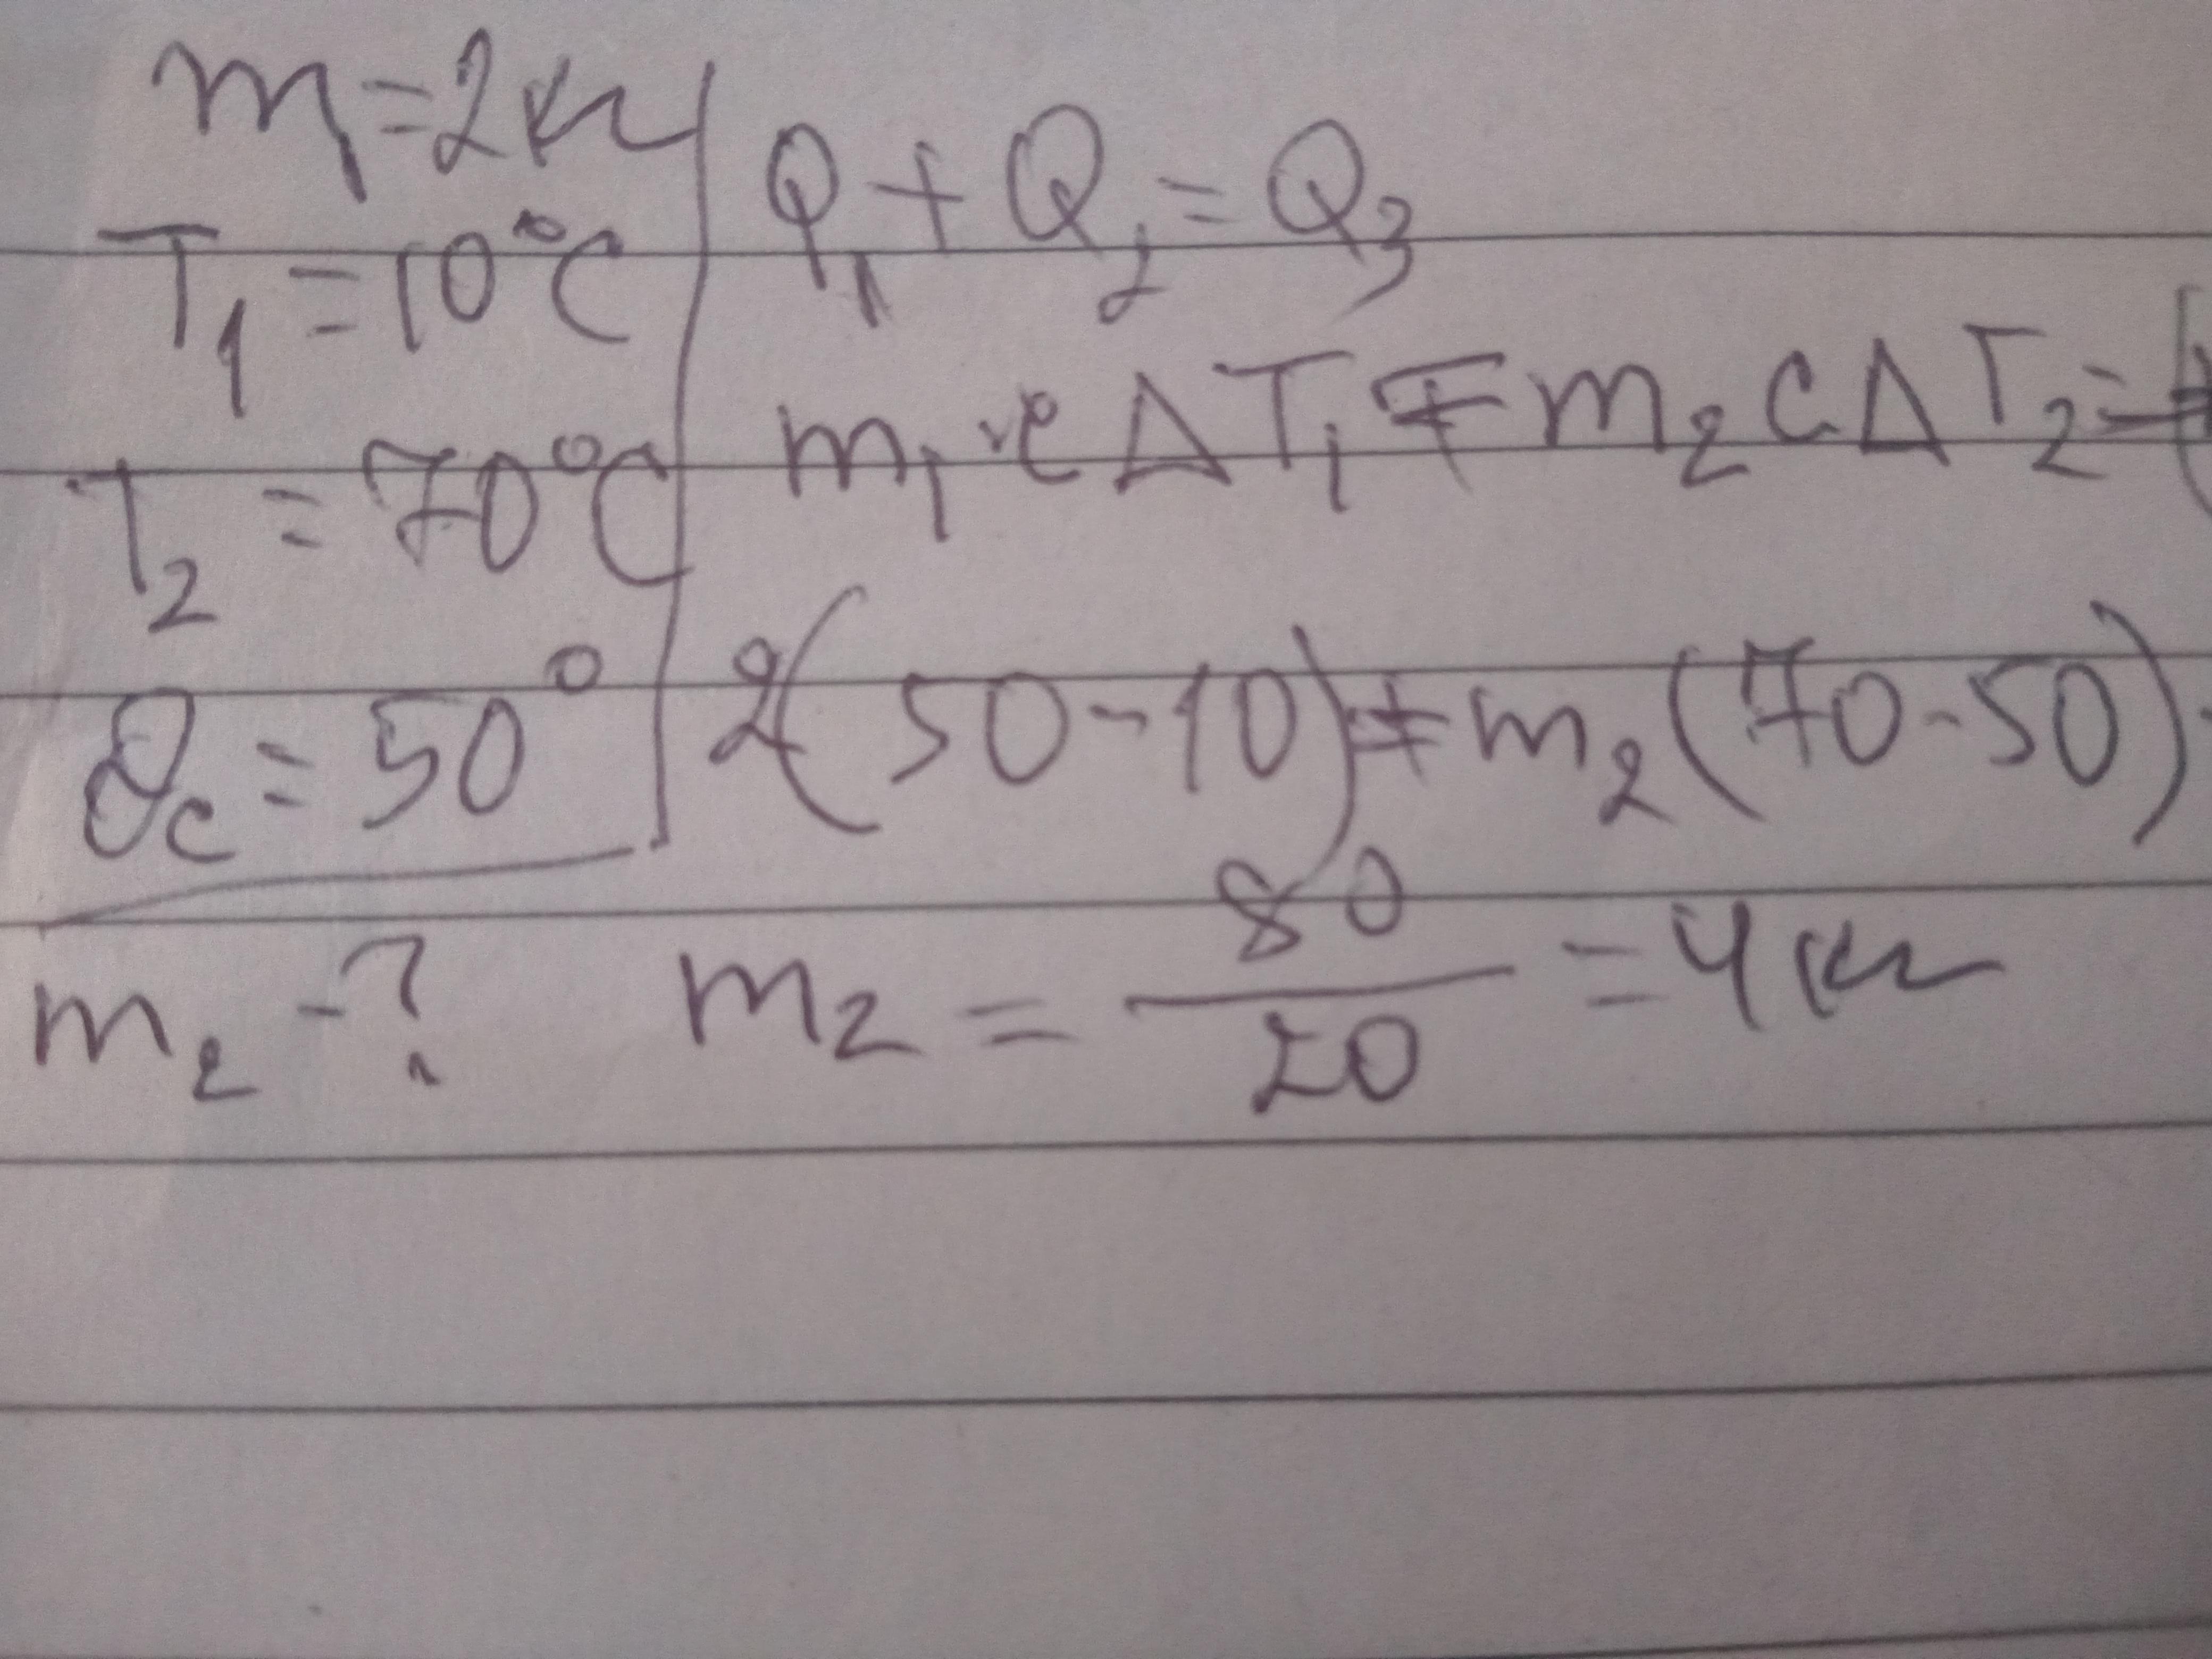 m₁=2кг
T₁=10°C
T₂=70°C
θc=50°
m₂-?
Q₁+Q₂=Q₃
m₁cΔT₁=m₂cΔT₂=
2(50-10)=m₂(70-50)
m₂=80/20=4кг